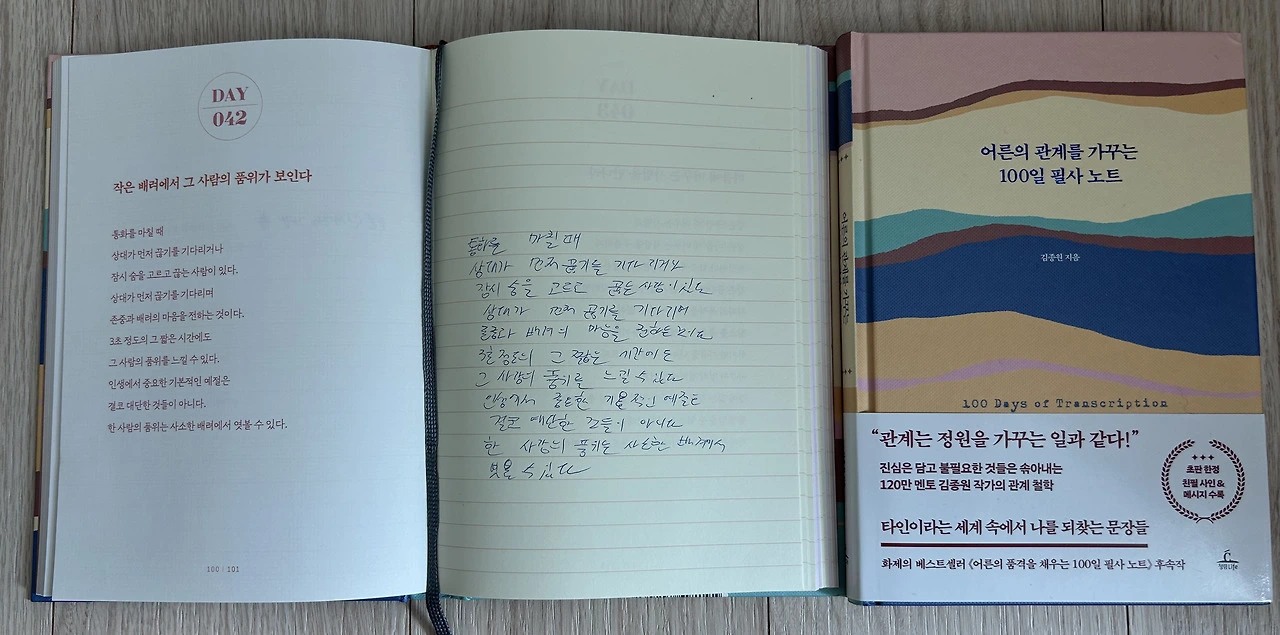 DAY
042
작은 배려에서 그 사람의 품위가 보인다
통화를 마칠 때
상대가 먼저 끊기를 기다리거나
잠시 숨을 고르고 끊는 사람이 있다.
상대가 먼저 끊기를 기다리며
존중과 배려의 마음을 전하는 것이다.
3초 정도의 그 짧은 시간에도
그 사람의 품위를 느낄 수 있다.
인생에서 중요한 기본적인 예절은
결코 대단한 것들이 아니다.
한 사람의 품위는 사소한 배려에서 엿볼 수 있다.
100 / 101
통화를 마칠 때
상대가 먼저 끊기를 기다리거나
잠시 숨을 고르고 끊는 사람이 있다
상대가 먼저 끊기를 기다리며
존중과 배려의 마음을 전하는 것이다
3초 정도의 그 짧은 시간에도
그 사람의 품위를 느낄 수 있다
인생에서 중요한 기본적인 예절은
결코 대단한 것들이 아니다
한 사람의 품위는 사소한 배려에서
엿볼 수 있다
어른의 관계를 가꾸는
어른의 관계를 가꾸는
100일 필사 노트
김종원 지음
100 Days of Transcription
“관계는 정원을 가꾸는 일과 같다!”
진심은 담고 불필요한 것들은 솎아내는
120만 멘토 김종원 작가의 관계 철학
초판 한정
친필 사인 &
메시지 수록
타인이라는 세계 속에서 나를 되찾는 문장들
화제의 베스트셀러 《어른의 품격을 채우는 100일 필사 노트》 후속작